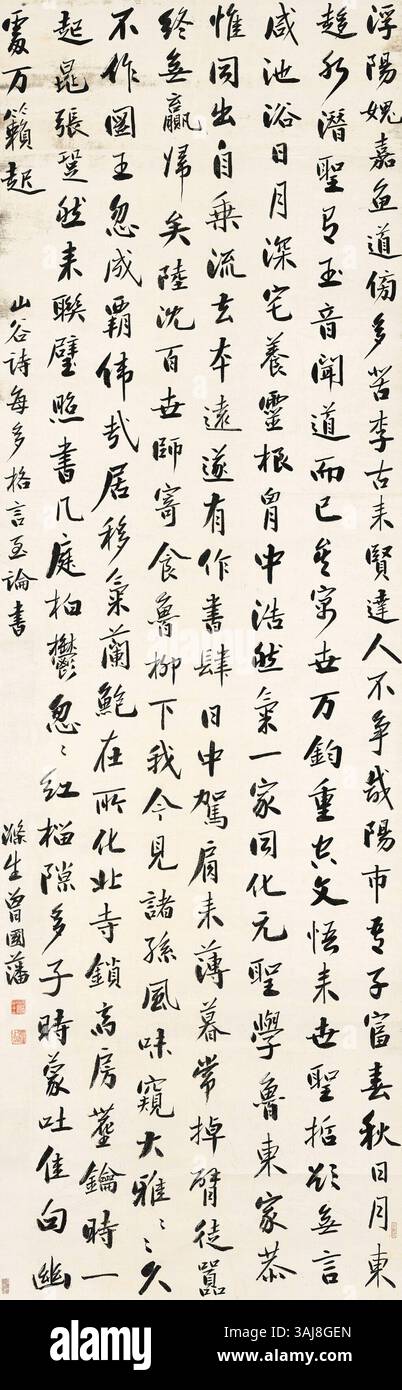 浮陽愧嘉魚道傍多苦李古來賢達人不爭咸陽市有子富春秋日月東
趨水潛聖有玉音聞道而已矣世万鈞重空文悟來世聖哲欲無言
咸池浴日月深宅養靈根胷中浩然氣一家同化元聖學魯東家恭
惟同出自乘流去本遠遂有作書肆日中駕肩來薄暮常掉臂徒囂
終無贏歸矣陸沈百世師寄食魯柳下我今見諸孫風味窺大雅〻〻久
不作圖王忽成霸偉哉居移氣蘭鮑在所化北寺鎖齋房塵鑰時一
起晁張跫然來聯璧照書几庭柏鬱葱〻紅榴隙多子時蒙吐佳句幽
處万籟起
山谷詩每多格言至論書
滌生曾國藩
alamy
Image ID: 3AJ8GEN
www.alamy.com